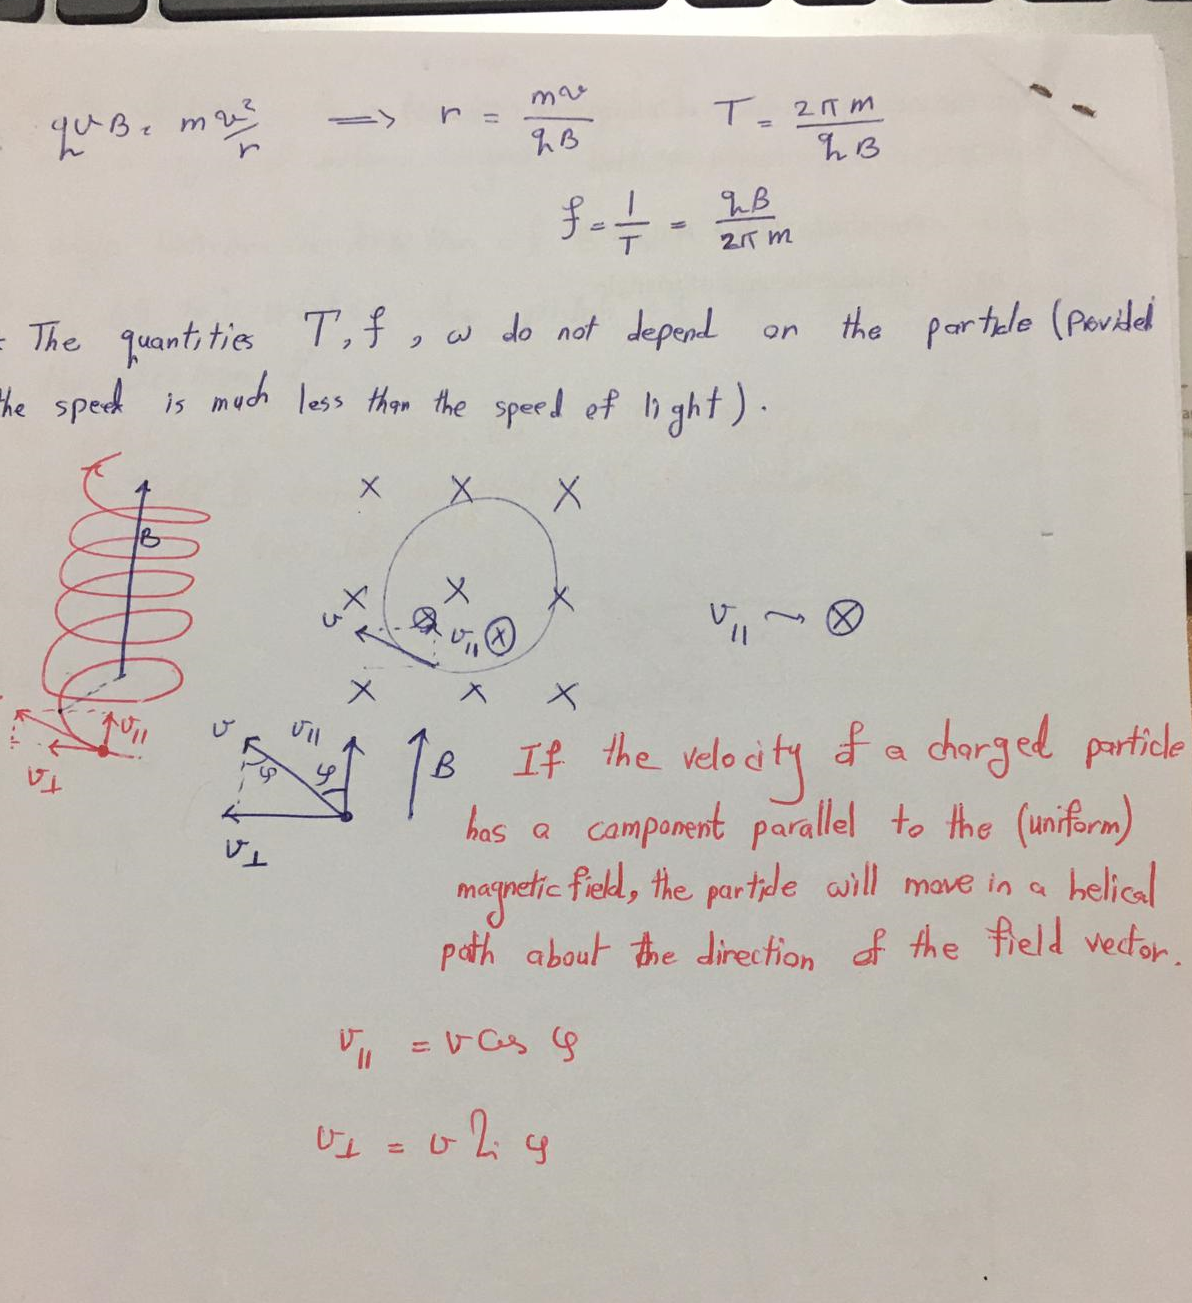 qvB = m v²/r ⟹ r = mv/qB T = 2πm/qB
f = 1/T = qB/2πm
The quantities T, f, ω do not depend on the particle (Provided
the speed is much less than the speed of light).
X X X
B
X X X
v v∥ ⊗ v∥ ⇝ ⊗
X X X
v∥
v⊥
v v∥ φ φ B
v⊥
If the velocity of a charged particle
has a component parallel to the (uniform)
magnetic field, the particle will move in a helical
path about the direction of the field vector.
v∥ = v Cos φ
v⊥ = v Sin φ